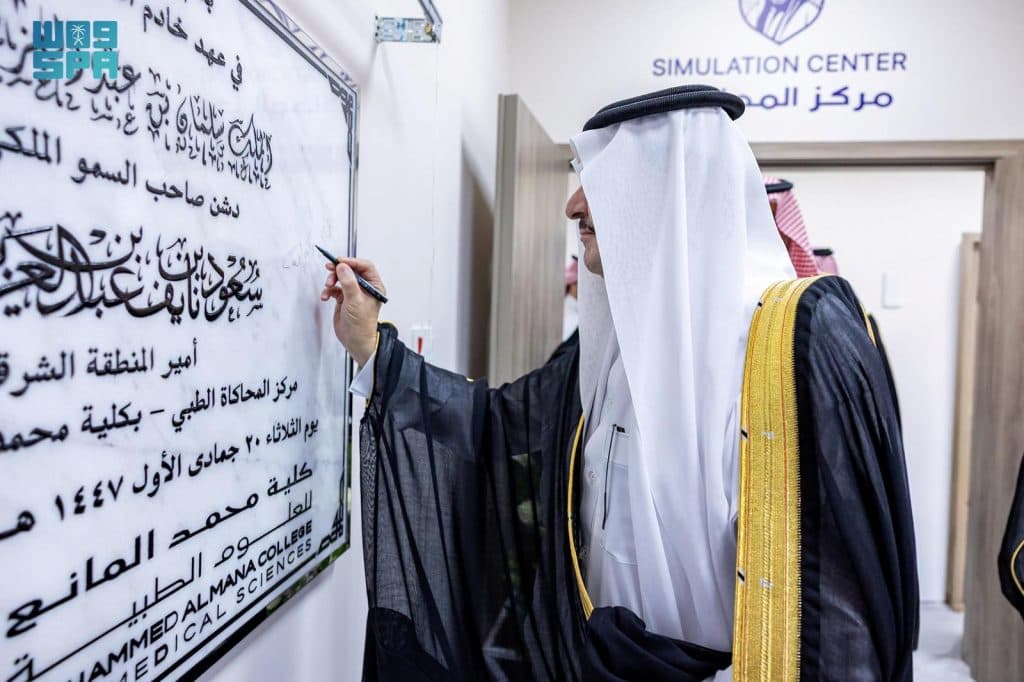 واس
SPA
في عهد خادم
الملك سلمان بن عبدالعز
دشن صاحب السمو الملكي
سعود بن نايف بن عبدالعزي
أمير المنطقة الشرق
مركز المحاكاة الطبي - بكلية محمد
يوم الثلاثاء ٢٠ جمادى الأول ١٤٤٧ هـ
كلية محمد المانع
للعلوم الطبية
HAMMED ALMANA COLLEGE
MEDICAL SCIENCES
SIMULATION CENTER
مركز المح